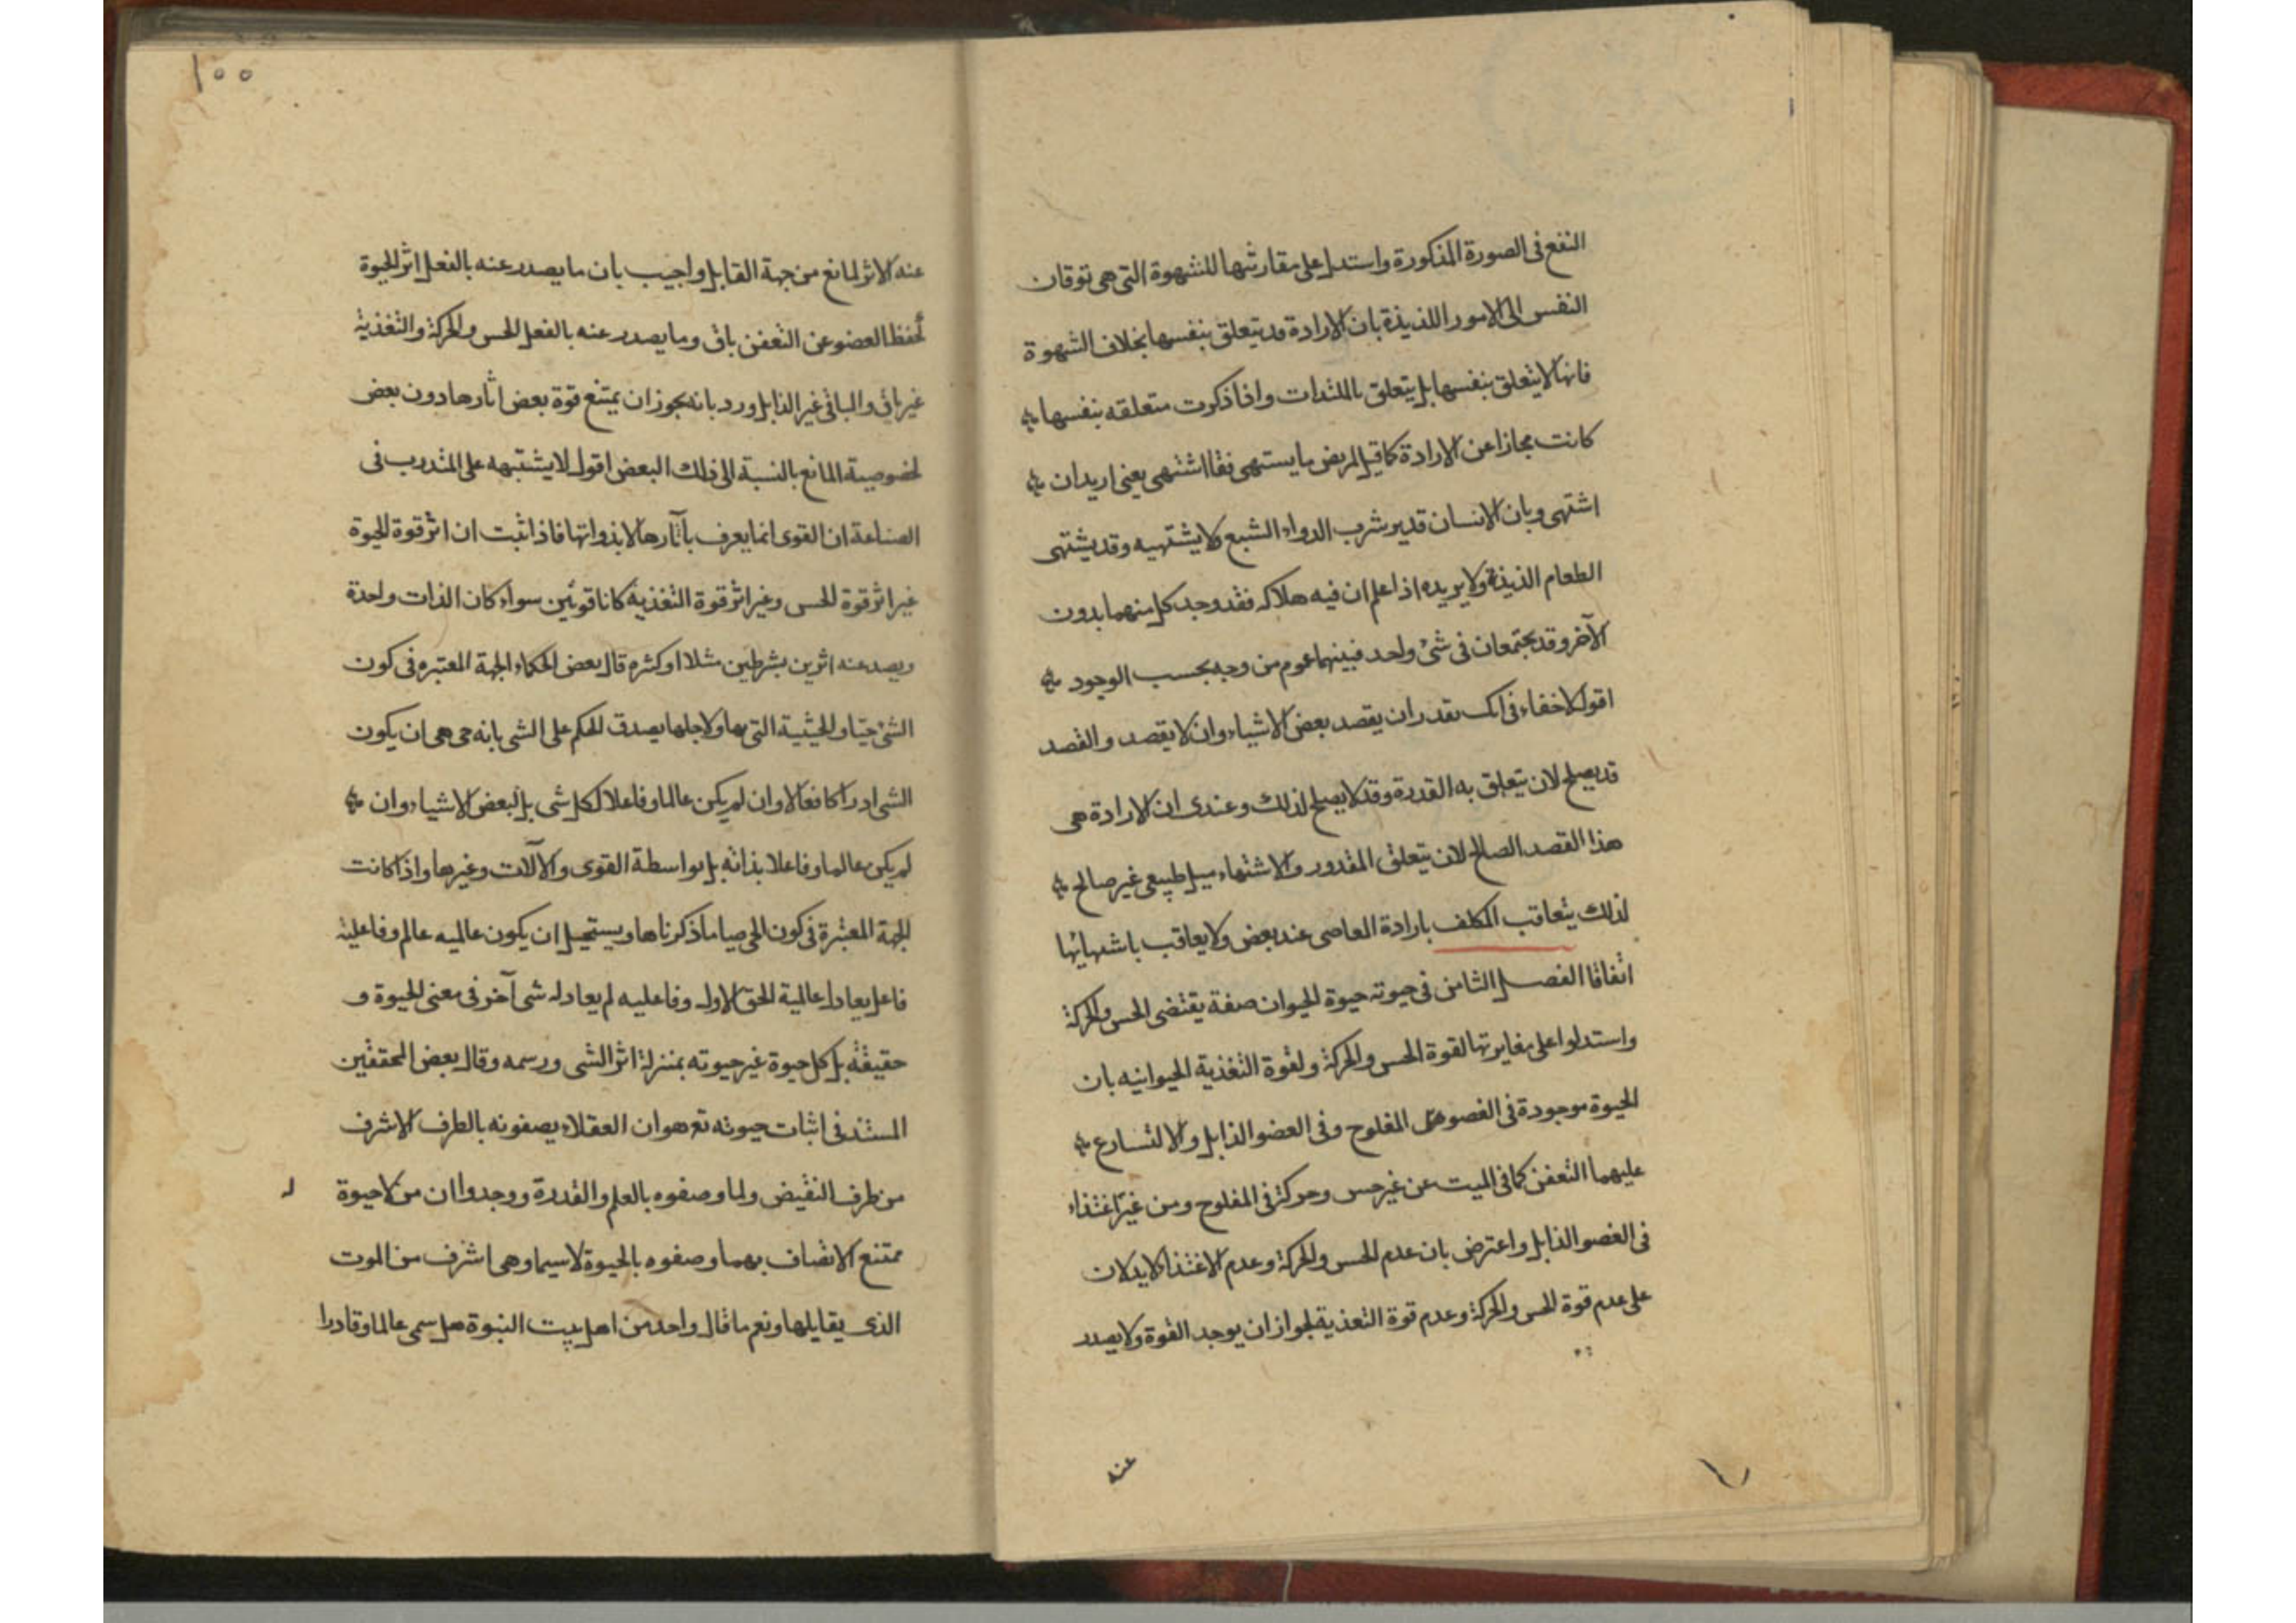 النفع فى الصورة المذكورة واستدل على مقارتها للشهوة التى هى توقان
النفس الى الامور اللذيذة بان الارادة قد يتعلق بنفسها بخلاف الشهوة
فانها لا يتعلق بنفسها بل يتعلق باللذات واذا ذكرت متعلقه بنفسها
كانت مجازا عن الارادة كما قيل لمريض ما يستهى فقا اشتهى يعنى اريد ان
اشتهى وبان الانسان قد يريد شرب الدواء الشبع ولا يشتهيه وقد يشتهى
الطعام الذيذة ولا يريده اذا علم ان فيه هلاكه فقد وجد كل منهما بدون
الآخر وقد يجتمعان فى شئ واحد فبينهما عموم من وجه بحسب الوجود
اقول لا خفاء فى انك تقدر ان يقصد بعض الاشياء وان لا يقصد والقصد
قد يصلح لان يتعلق به القدرة وقد لا يصلح لذلك وعندى ان الارادة هى
هذا القصد الصالح لان يتعلق المقدور والاشتهاء ميل طبيعى غير صالح
لذلك يتعاقب المكلف بارادة المعاصى عند بعض ولا يعاقب باشتهائها
اتفاقا الفصل الثامن فى حيوته حيوة الحيوان صفة يقتضى الحس والحركة
واستدلوا على مغايرتها لقوة الحس والحركة ولقوة التغذية الحيوانيه بان
الحيوة موجودة فى العضو المفلوج وفى العضو الذابل والا لتسارع
عليهما التعفن كما فى الميت عن غير حس وحركة فى المفلوج ومن غير اغتذاء
فى العضو الذابل واعترض بان عدم الحس والحركة وعدم الاغتذاء لا يدلان
على عدم قوة الحس والحركة وعدم قوة التغذية لجواز ان يوجد القوة ولا يصدر
عنه
١٥٥
عنه الاثر لمانع من جهة القابل واجيب بان ما يصدر عنه بالفعل اثر الحيوة
لحفظ العضو عن التعفن باق وما يصدر عنه بالفعل للحس والحركة والتغذية
غير باق والباقى غير الذابل ورد بانه يجوز ان يمتنع قوة بعض اثارها دون بعض
لخصوصية المانع بالنسبة الى ذلك البعض اقول لا يشتبهه على المتدرب فى
الصناعة ان القوى انما يعرف بآثارها لا بذواتها فاذا ثبت ان اثر قوة الحيوة
غير اثر قوة الحس وغير اثر قوة التغذية كانا قوتين سواء كان الذات واحدة
ويصدر عنه اثرين بشرطين مثلا او كثره قال بعض الحكماء الجهة المعتبره فى كون
الشئ حيا والحيثية التى بها ولاجلها يصدق الحكم على الشى بانه حى هى ان يكون
الشى ادراكا فعالا وان لم يكن عالما وفاعلا لكل شى بل لبعض الاشياء وان
لم يكن عالما وفاعلا بذاته بل بواسطة القوى والآلات وغيرها واذا كانت
الجهة المعتبرة فى كون الحى حيا ما ذكرناها ويستحيل ان يكون عالميه عالم وفاعلية
فاعل يعادل عالمية الحق الاول وفاعليه لم يعادله شى آخر فى معنى الحيوة و
حقيقته بل كل حيوة غير حيوته بمنزلة اثر الشى ورسمه وقال بعض المحققين
المستند فى اثبات حيوته تع هو ان العقلاء يصفونه بالطرف الاشرف
من طرف النقيض ولما وصفوه بالعلم والقدرة ووجدوا ان من لا حيوة
ممتنع الاتصاف بهما وصفوه بالحيوة لا سيما وهى اشرف من الموت
الذى يقابلها ونعم ما قال واحد من اهل بيت النبوة هل سمى عالما وقادرا